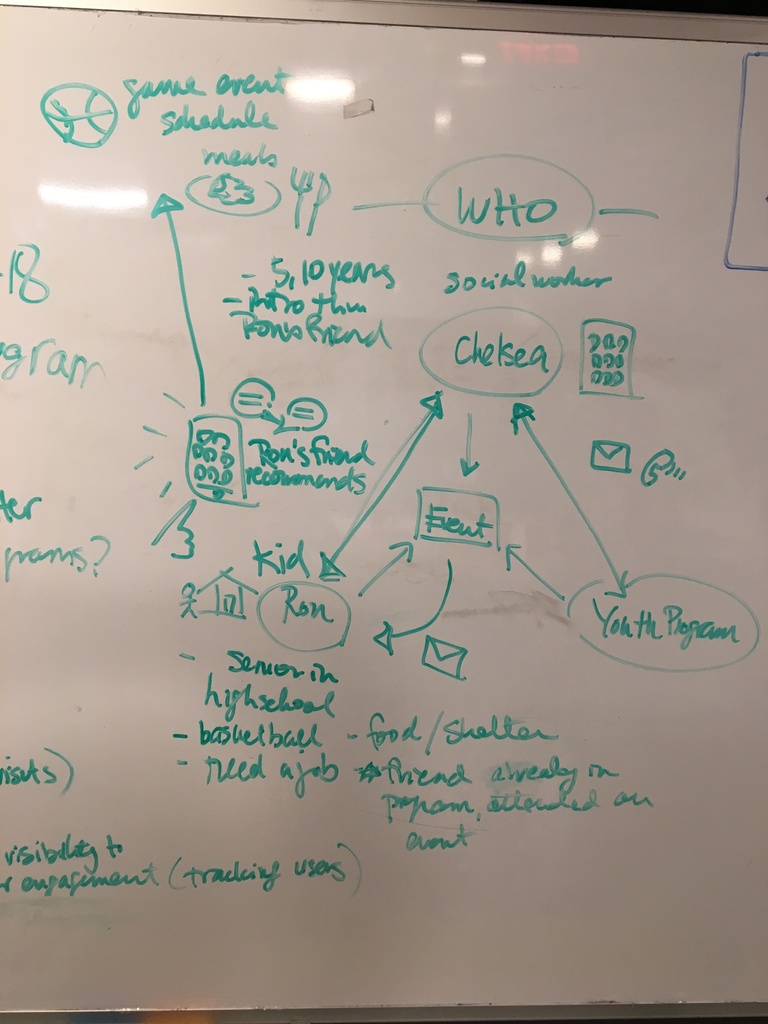 game event
schedule
meals
WHO
-18
- 5, 10 years
- intro thru
Ron's friend
social worker
Chelsea
ogram
Ron's friend
recommends
Event
ter
grams?
Kid
Ron
Youth Program
- senior in
high school
- basketball
- need a job
- food/shelter
friend already in
program, attended an
event
visits)
visibility to
r engagement (tracking users)